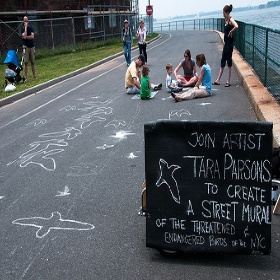 JOIN ARTIST
TARA PARSONS
TO CREATE
A STREET MURAL
OF THE THREATENED &
ENDANGERED BIRDS OF THE NYC